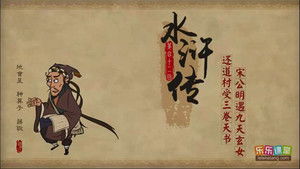 水浒传
宋公明遇九天玄女
还道村受三卷天书
地會星
神算子
蒋敬
乐乐课堂
leleketang.com